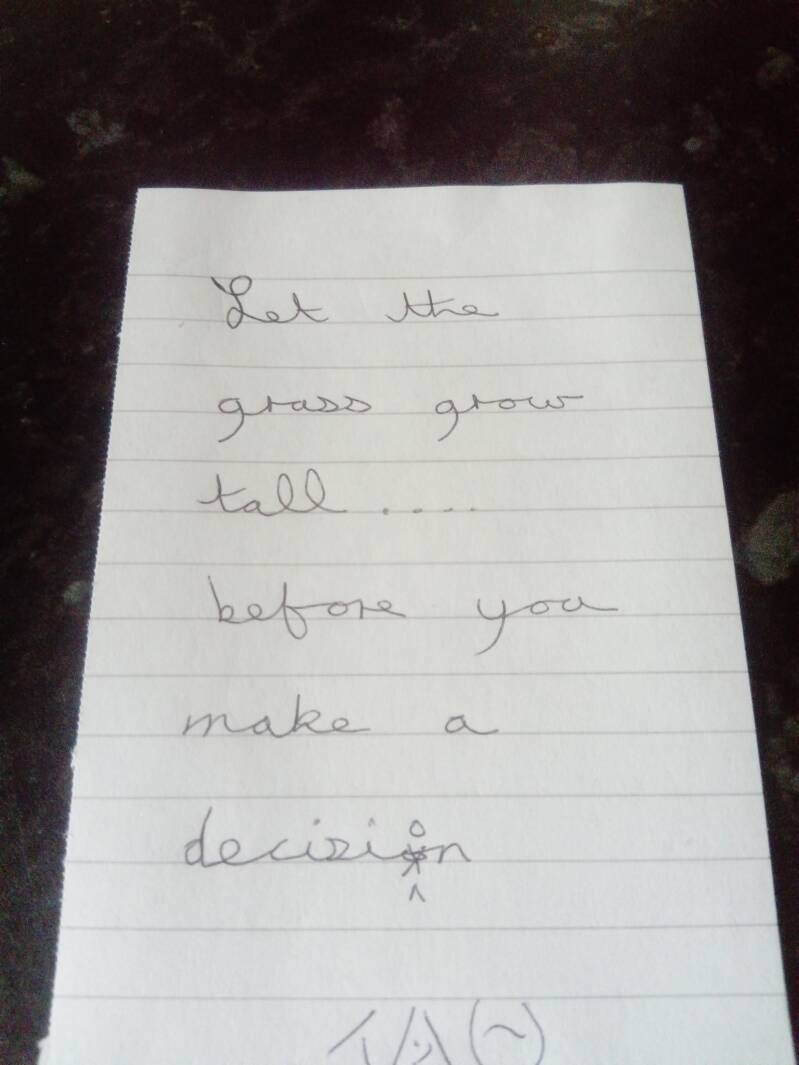 Let the
grass grow
tall....
before you
make a
decision